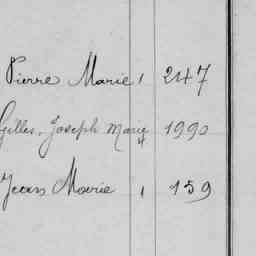 Pierre Marie 1 247
Gilles, Joseph Marie 4 1990
Jean Marie 1 159